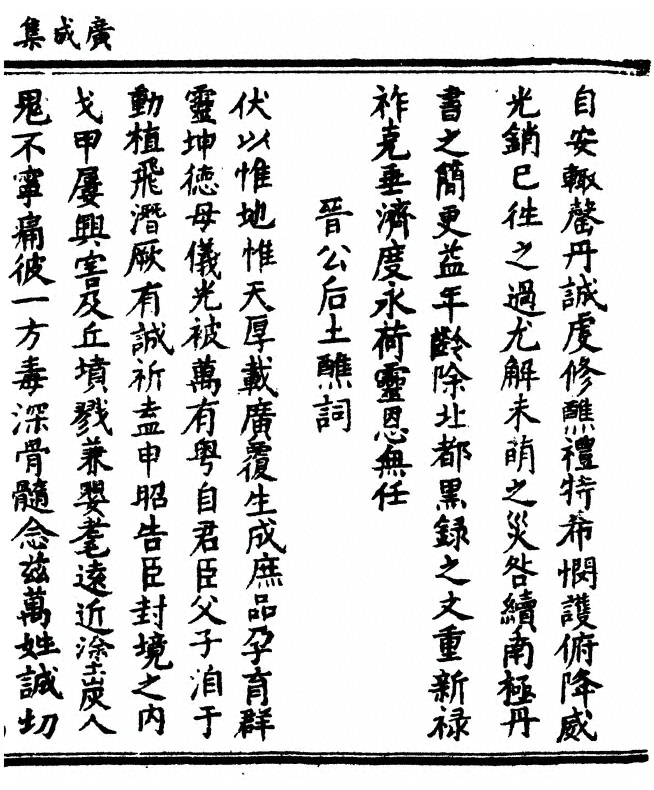 廣成集
自安輙罄丹誠虔修醮禮特希憫護俯降威
光銷已往之過尤解未萌之災咎續南極丹
書之簡更益年齡除北都黒録之文重新禄
祚克垂濟度永荷靈恩無任
晉公后土醮詞
伏以惟地惟天厚載廣覆生成庶品孕育群
靈坤德母儀光被萬有粤自君臣父子洎于
動植飛潛厥有誠祈盍申昭告臣封境之内
戈甲屢興害及丘墳戮兼嬰耄遠近塗炭人
鬼不寧痛彼一方毒深骨髓念茲萬姓誠切